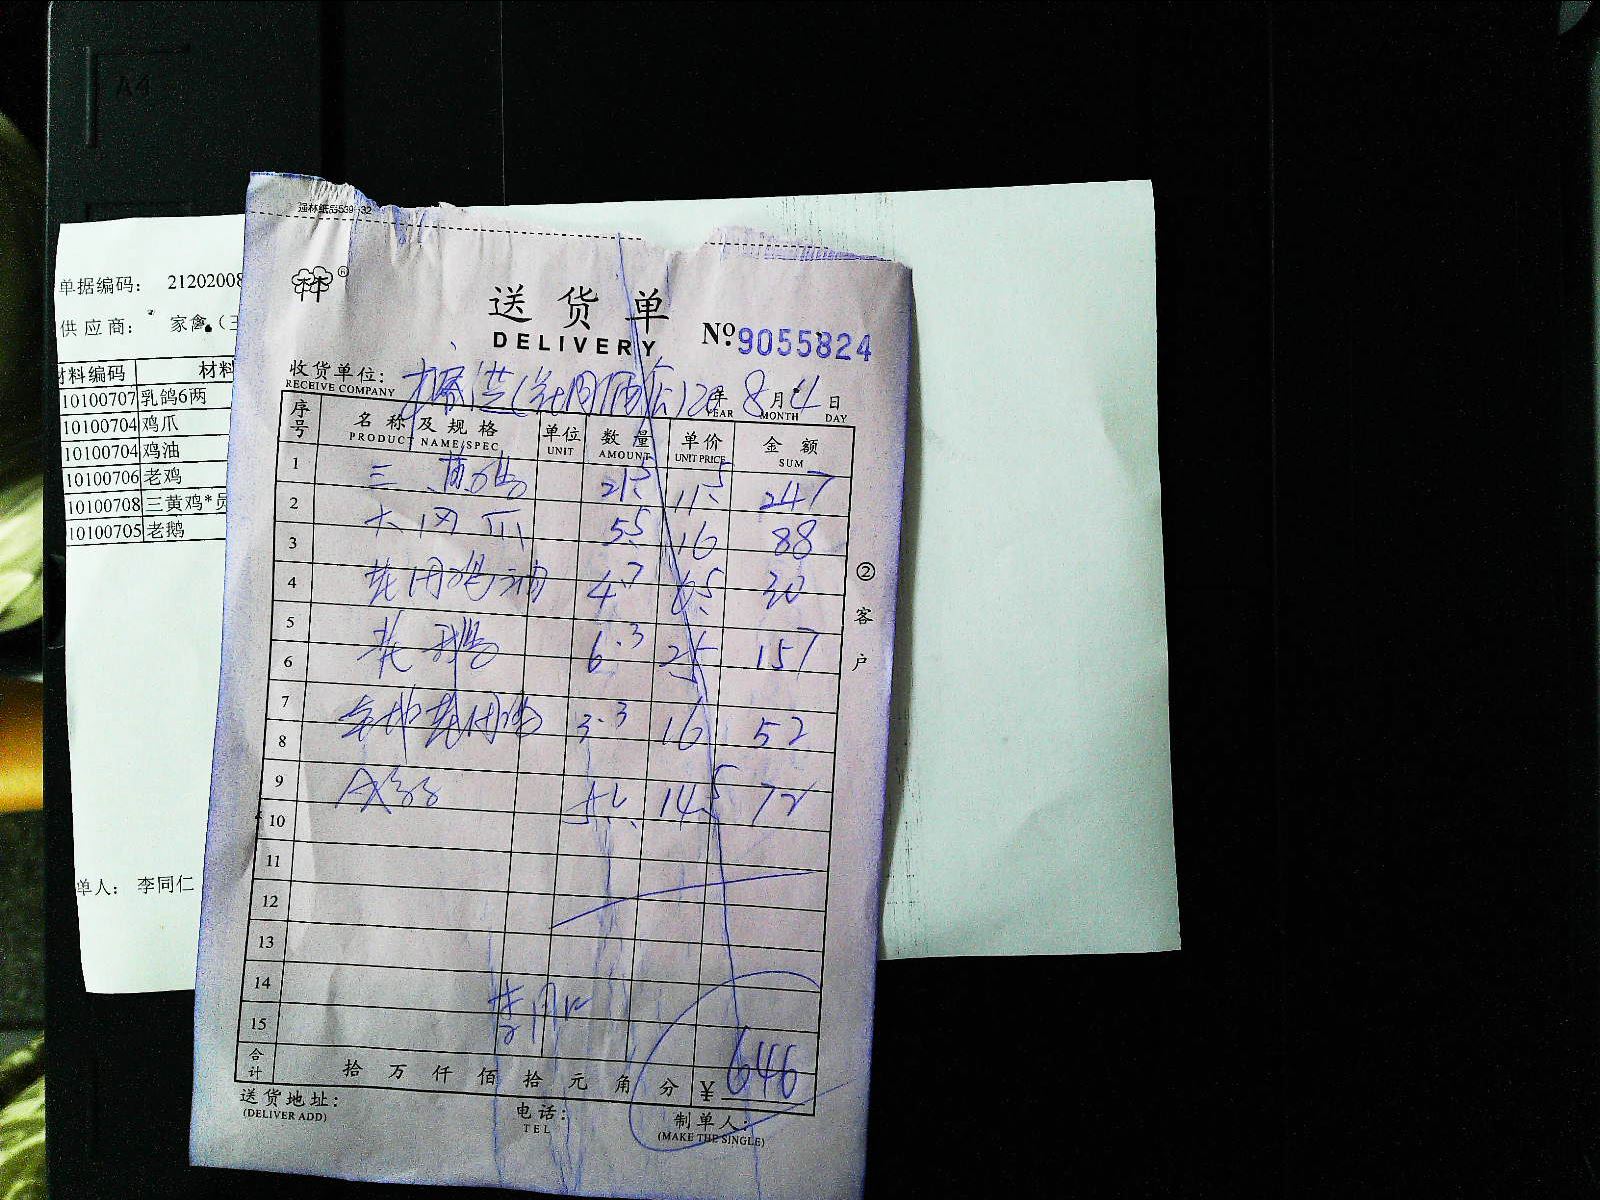 A4
单据编码： 21202008
供 应 商： 家禽（王
材料编码 材料
10100707 乳鸽6两
10100704 鸡爪
10100704 鸡油
10100706 老鸡
10100708 三黄鸡*员
10100705 老鹅
单人： 李同仁
送 货 单
DELIVERY
No. 9055824
收货单位:
RECEIVE COMPANY
20年 8月 11日
YEAR MONTH DAY
序号 名 称 及 规 格 单位 数 量 单价 金 额
PRODUCT NAME/SPEC UNIT AMOUNT UNIT PRICE SUM
1 三黄鸡 21.5 11.5 247
2
3 大凤爪 5.5 16 88
4 鸡油 4.7 6.5 30
5
6 老鹅 6.3 25 157
7
8 3.3 16 52
9
10 14.5 72
11
12
13
14
15
李同仁
合计 拾 万 仟 佰 拾 元 角 分 ￥ 646
送货地址： 电话： 制单人：
(DELIVER ADD) TEL (MAKE THE SINGLE)
② 客户